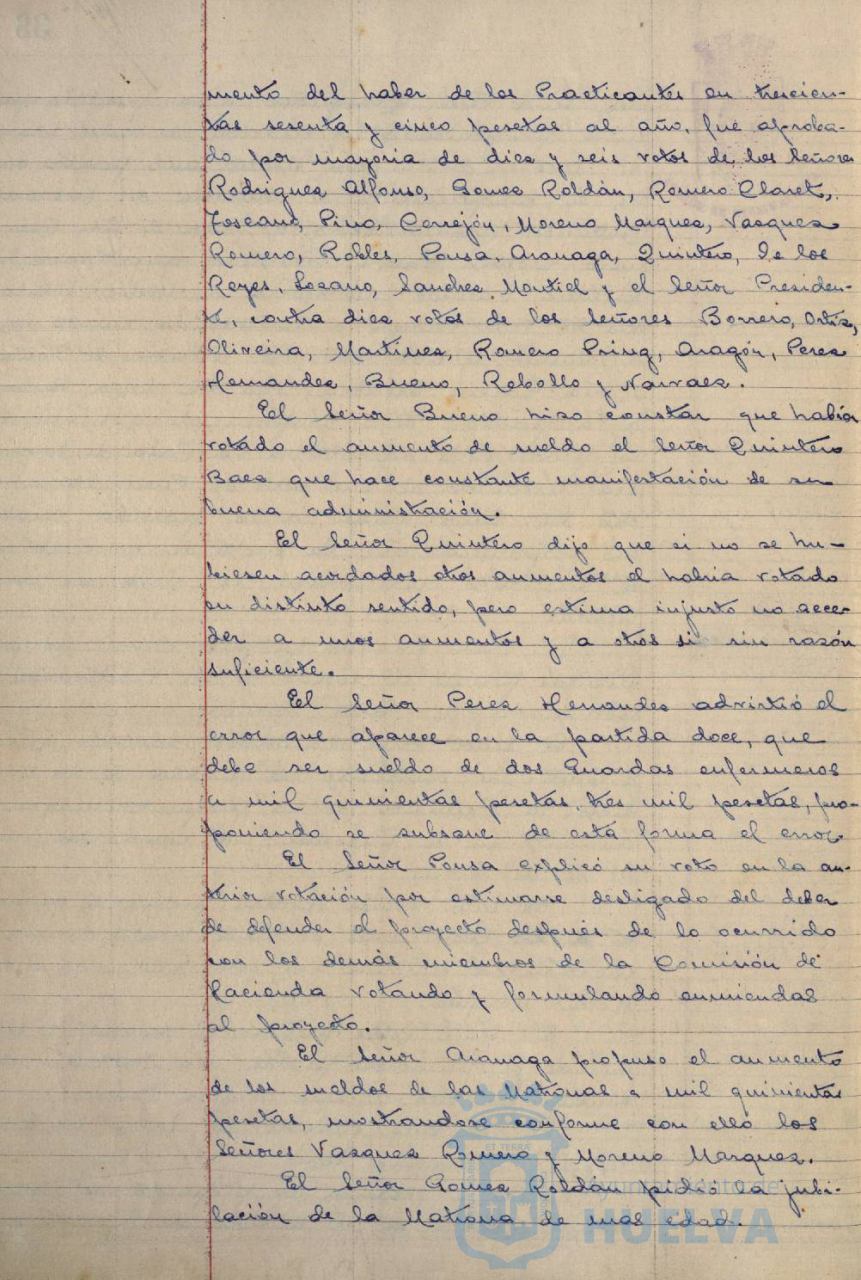 mento del haber de los Practicantes en trescien-
tas sesenta y cinco pesetas al año, fue aproba-
do por mayoria de diez y seis votos de los Señores
Rodriguez Alfonso, Gomez Roldán, Romero Claret,
Toscano, Pino, Correjón, Moreno Marquez, Vazquez
Romero, Robles, Ponsa, Aranaga, Quintero, De los
Reyes, Lozano, Sanchez Montiel y el Señor Presiden-
te, contra diez votos de los Señores Borrero, Ortiz,
Oliveira, Martinez, Romero Pring, Aragón, Perez
Hernandez, Bueno, Rebollo y Narvaez.
El Señor Bueno hizo constar que habia
votado el aumento de sueldo el Señor Quintero
Baez que hace constante manifestación de su
buena administración.
El Señor Quintero dijo que si no se hu-
biesen acordados otros aumentos el habria votado
en distinto sentido, pero estima injusto no acce-
der a unos aumentos y a otros si sin razón
suficiente.
El Señor Perez Hernandez advirtió el
error que aparece en la partida doce, que
debe ser sueldo de dos Guardas enfermeros
a mil quinientas pesetas, tres mil pesetas, pro-
poniendo se subsane de esta forma el error.
El Señor Ponsa explicó su voto en la an-
terior votación por estimarse desligado del deber
de defender el proyecto después de lo ocurrido
con los demás miembros de la Comisión de
Hacienda votando y formulando enmiendas
al proyecto.
El Señor Aranaga propuso el aumento
de los sueldos de las Matronas a mil quinientas
pesetas, mostrandose conforme con ello los
Señores Vazquez Romero y Moreno Marquez.
El Señor Gomez Roldán pidió la jubi-
lación de la Matrona de mas edad.
HUELVA